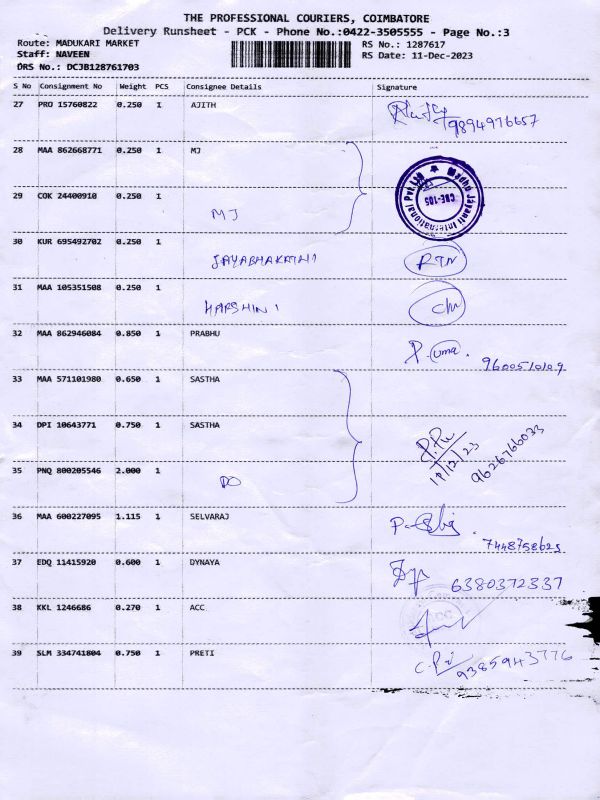 THE PROFESSIONAL COURIERS, COIMBATORE
Delivery Runsheet - PCK - Phone No.:0422-3505555 - Page No.:3
Route: MADUKARI MARKET
RS No.: 1287617
Staff: NAVEEN
RS Date: 11-Dec-2023
DRS No.: DCJB128761703
S No Consignment No Weight PCS Consignee Details Signature
27 PRO 15760822 0.250 1 AJITH
9894976657
28 MAA 862668771 0.250 1 MJ
Madhu Jayanti International Pvt Ltd
CBE-105
29 COK 24400910 0.250 1 MJ
30 KUR 695492702 0.250 1
JAYABHARATHI
31 MAA 105351508 0.250 1
HARSHINI
32 MAA 862946084 0.850 1 PRABHU
P. uma. 9600510109
33 MAA 571101980 0.650 1 SASTHA
34 DPI 10643771 0.750 1 SASTHA
9626766033
35 PNQ 800205546 2.000 1 DO
36 MAA 600227095 1.115 1 SELVARAJ
7448758625
37 EDQ 11415920 0.600 1 DYNAYA
6380372337
38 KKL 1246686 0.270 1 ACC
39 SLM 334741804 0.750 1 PRETI
9385943776